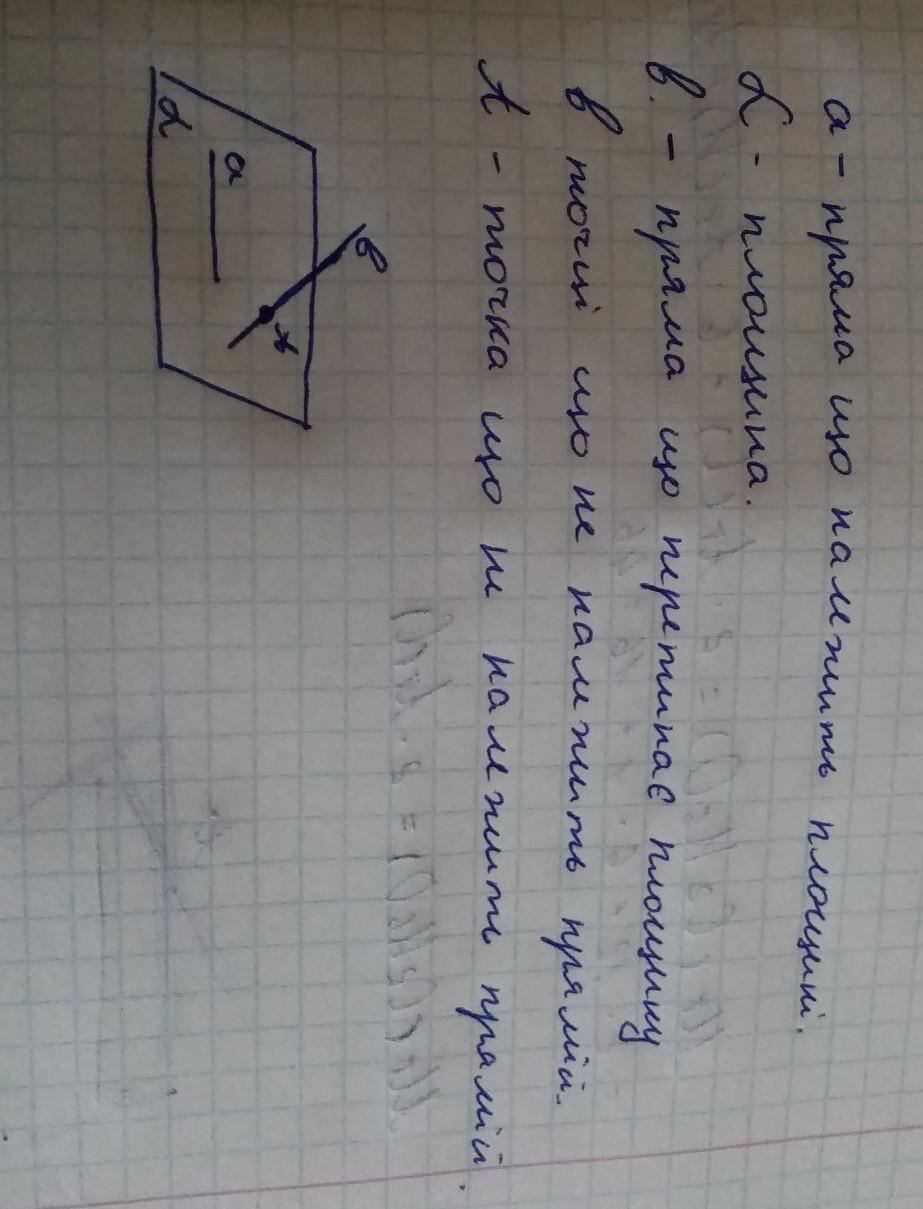 a - пряма що належить площині.
α - площина.
в - пряма що перетинає площину
в точці що не належить прямій.
А - точка що не належить прямій.
в
a
А
α